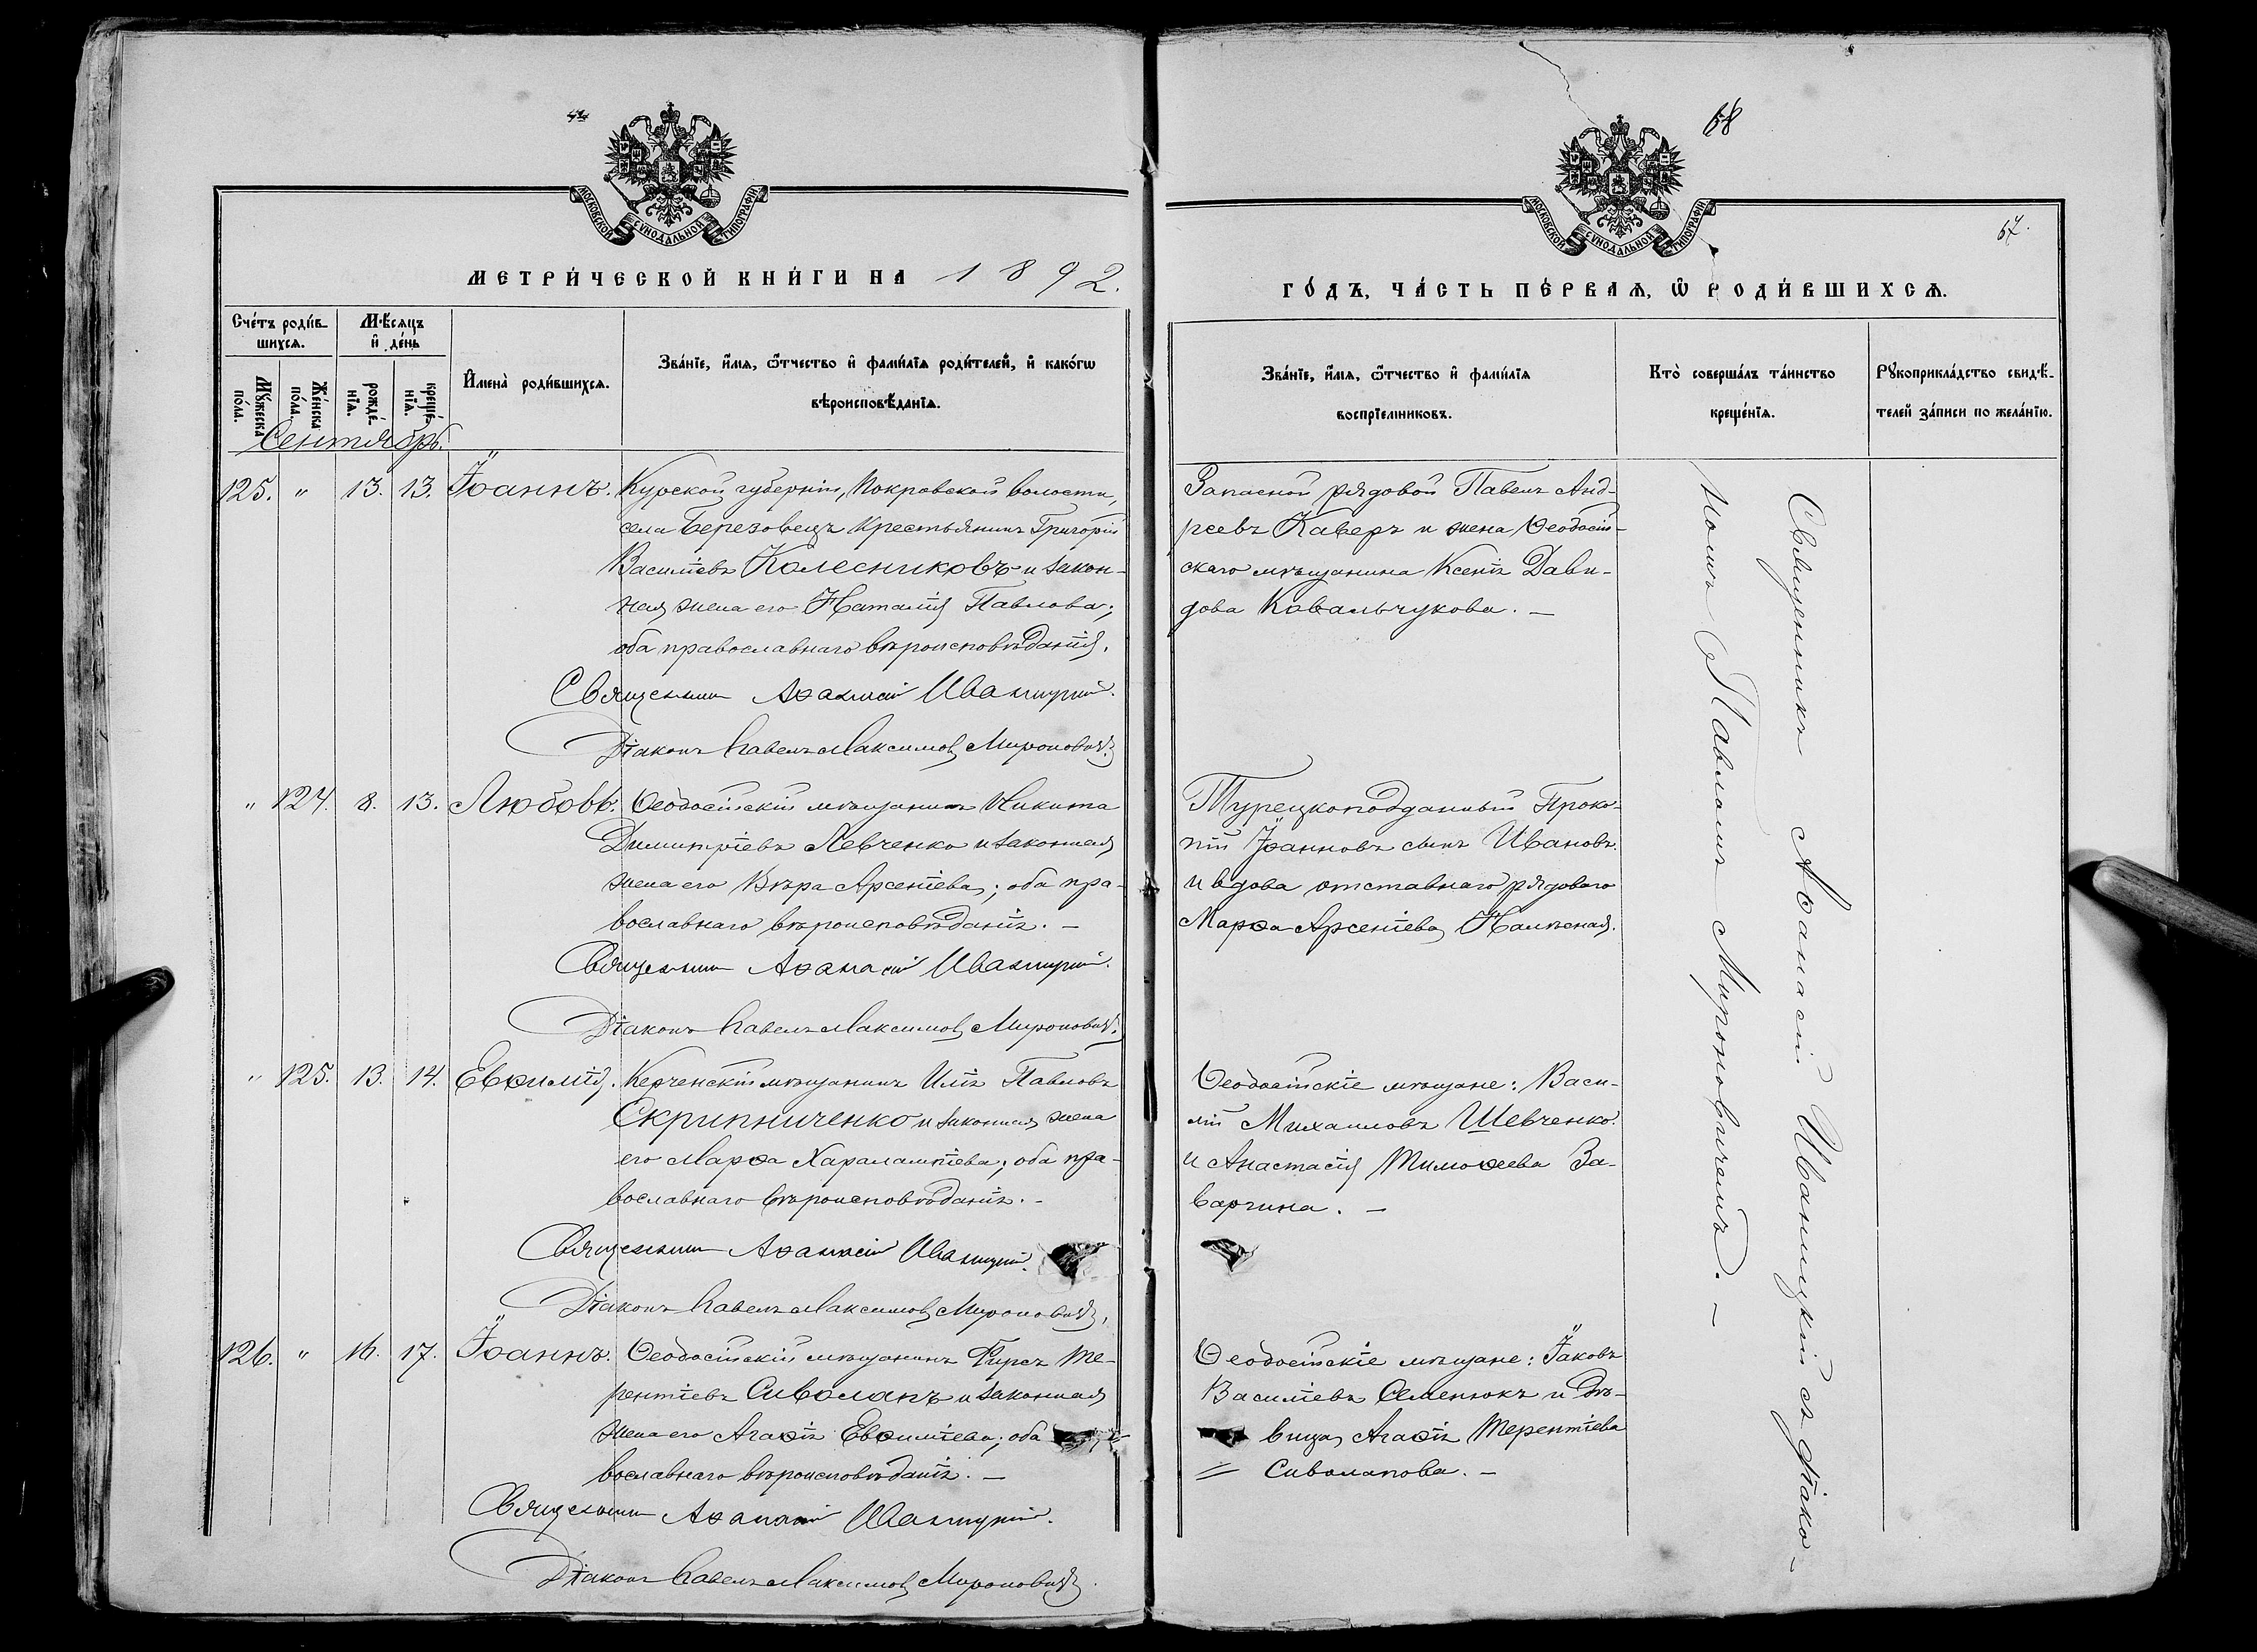 68
МОСКОВСКОЙ СѴНОДАЛЬНОЙ ТИПОГРАФІИ
МОСКОВСКОЙ СѴНОДАЛЬНОЙ ТИПОГРАФІИ
67.
МЕТРИ́ЧЕСКОЙ КНИ́ГИ НА 1892.
ГО́ДЪ, ЧА́СТЬ ПЕ́РВАѦ, Ѽ РОДИ́ВШИХСѦ.
Сче́тъ роди́в-
шихсѧ.
Мꙋ́жеска по́ла.
Же́нска по́ла.
Мѣ́сѧцъ
и҆ де́нь
рожде́-нїѧ.
креще́-нїѧ.
И҆мена̀ роди́вшихсѧ.
Зва́нїе, и҆́мѧ, ѻ҆́тчество и҆ фами́лїѧ роди́телей, и҆ како́гѡ
вѣроисповѣ́данїѧ.
Зва́нїе, и҆́мѧ, ѻ҆́тчество и҆ фами́лїѧ
воспрїе́мниковъ.
Кто̀ соверша́лъ та́инство
креще́нїѧ.
Рꙋкоприкла́дство свидѣ́-
телей за́писи по жела́нїю.
Сентябрь.
125. " 13. 13. Іоаннъ. Курской губерніи, Покровской волости,
села Березовецъ крестьянинъ Григорій
Василіевъ Колесниковъ и закон-
ная жена его Наталія Павлова;
оба православнаго вѣроисповѣданія.
Священникъ Аѳанасій Иваницкій.
Діаконъ Павелъ Максимовъ Мироновичъ.
Запасной рядовой Павелъ Анд-
реевъ Каверъ и жена Ѳеодосій-
скаго мѣщанина Ксенія Дави-
дова Ковальчукова. —
" 124. 8. 13. Любовь. Ѳеодосійскій мѣщанинъ Никита
Димитріевъ Левченко и законная
жена его Вѣра Арсеніева; оба пра-
вославнаго вѣроисповѣданія. —
Священникъ Аѳанасій Иваницкій.
Діаконъ Павелъ Максимовъ Мироновичъ.
Турецкоподданный Проко-
пій Іоанновъ сынъ Ивановъ
и вдова отставнаго рядоваго
Марѳа Арсеніева
" 125. 13. 14. Евѳимія. Керченскій мѣщанинъ Илія Павловъ
Скрипниченко и законная жена
его Марѳа Харалампіева; оба пра-
вославнаго вѣроисповѣданія. —
Священникъ Аѳанасій Иваницкій.
Діаконъ Павелъ Максимовъ Мироновичъ.
Ѳеодосійскіе мѣщане: Васи-
лій Михаиловъ Шевченко
и Анастасія Тимоѳеева За-
варгина. —
126. " 16. 17. Іоаннъ. Ѳеодосійскій мѣщанинъ Фирсъ Те-
рентіевъ Сиволапъ и законная
жена его Агаѳія Евѳиміева; оба
вославнаго вѣроисповѣданія. —
Священникъ Аѳанасій Иваницкій.
Діаконъ Павелъ Максимовъ Мироновичъ.
Ѳеодосійскіе мѣщане: Іаковъ
Василіевъ Семенюкъ и дѣ-
вица Агаѳія Терентіева
Сиволапова. —
Священникъ Аѳанасій Иваницкій съ діако-
номъ Павломъ Мироновичемъ. —